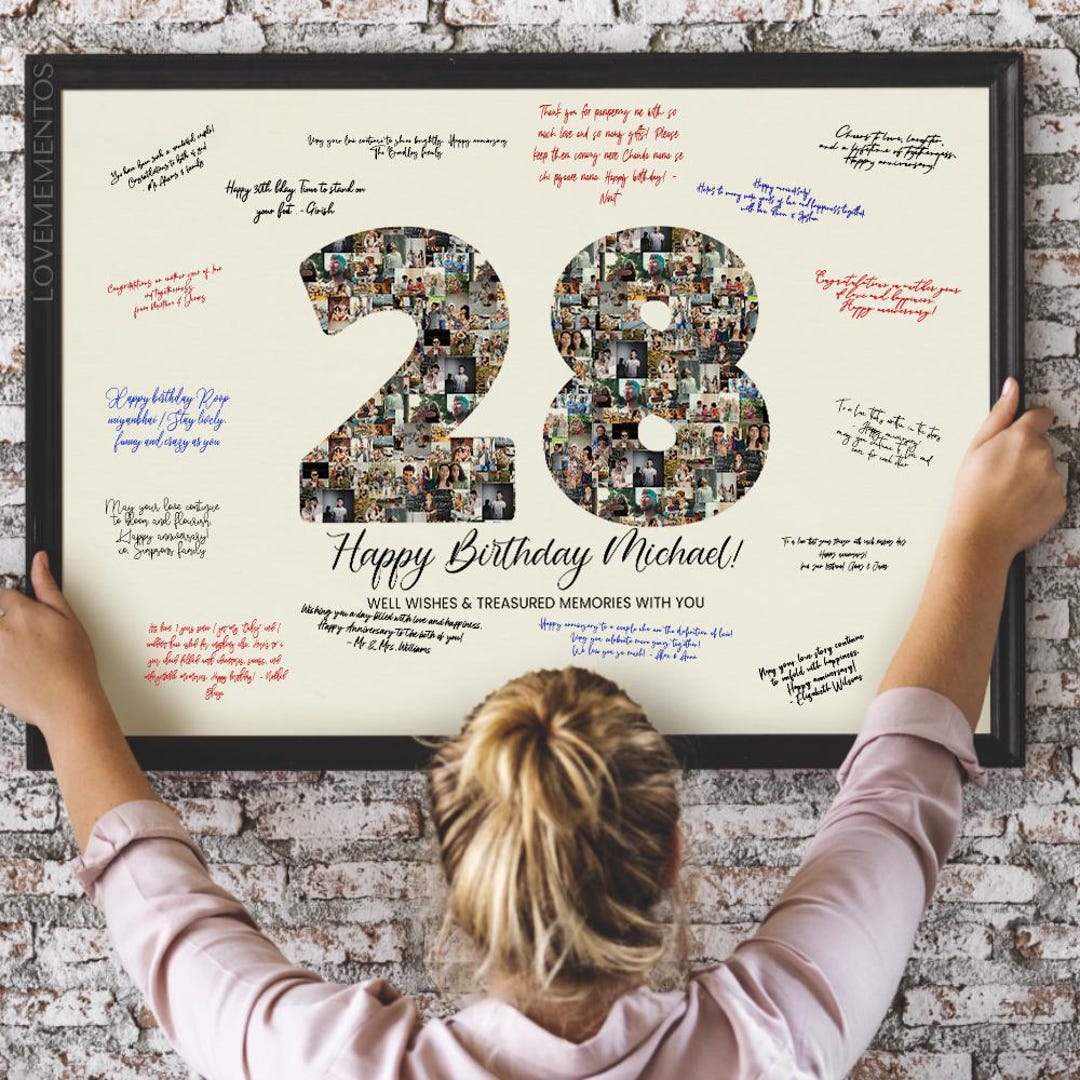 LOVEMEMENTOS
You have been such a wonderful couple!
Congratulations to both of you!
- Mr. Adams & family
May your love continue to shine brightly. Happy anniversary
The Bradley family
Happy 30th bday. Time to stand on
your feet. - Girish
Thank you for pampering me with so
much love and so many gifts! Please
keep them coming nere Chanda mama se
chi pyaare mama Happy birthday! -
Cheers to love, laughter,
and a lifetime of togetherness.
Happy anniversary!
Happy anniversary!
Heres to many more years of love and happiness together
with love
28
Congratulations on another year of love
and togetherness
from Matthew & Jonas
Congratulations on another year
of love and happiness.
Happy anniversary!
Happy birthday Roop
miyanbhai / Stay lively,
funny and crazy as you
To a love that's written in the stars
- Happy anniversary!
may you continue to live and
love for each other
May your love continue
to bloom and flourish.
Happy anniversary!
co. Simpsons family
Happy Birthday Michael!
WELL WISHES & TREASURED MEMORIES WITH YOU
To a love that grows stronger with each passing day.
Happy anniversary!
Wishing you a day filled with love and happiness.
Happy Anniversary to the both of you!
- Mr & Mrs. Williams
Happy anniversary to a couple who are the definition of love!
May you celebrate more years together!
We love you so much! - Alex & Anna
Its been 7 years since I got my
you cloud filled with
memories. Happy birthday! -
May your love story continue
to unfold with happiness.
Happy anniversary!
- Elizabeth Wilsons